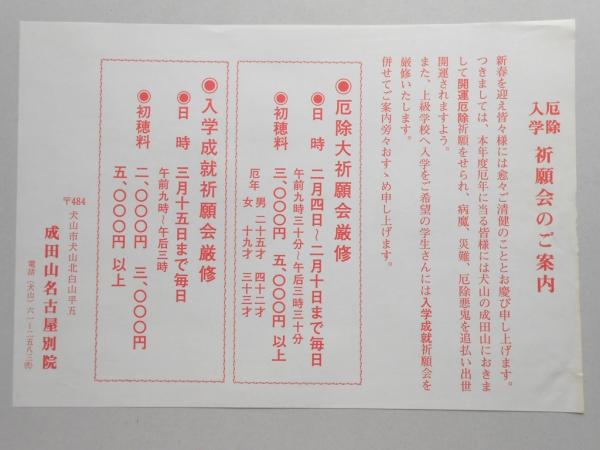 厄除
入学
祈願会のご案内
新春を迎え皆々様には愈々ご清健のこととお慶び申し上げます。
つきましては、本年度厄年に当る皆様には犬山の成田山におきま
して開運厄除祈願をせられ、病魔、災難、厄除悪鬼を追払い出世
開運されますよう。
また、上級学校へ入学をご希望の学生さんには入学成就祈願会を
厳修いたします。
併せてご案内旁々おすゝめ申し上げます。
◉厄除大祈願会厳修
◉日時 二月四日~二月十日まで毎日
午前九時三十分~午後三時三十分
◉初穂料 三、〇〇〇円 五、〇〇〇円以上
厄年 男 二十五才 四十二才
女 十九才 三十三才
◉入学成就祈願会厳修
◉日時 三月十五日まで毎日
午前九時~午後三時
◉初穂料 二、〇〇〇円 三、〇〇〇円
五、〇〇〇円以上
〒484 犬山市犬山北白山平五
成田山名古屋別院
電話(犬山)六一-二五八三